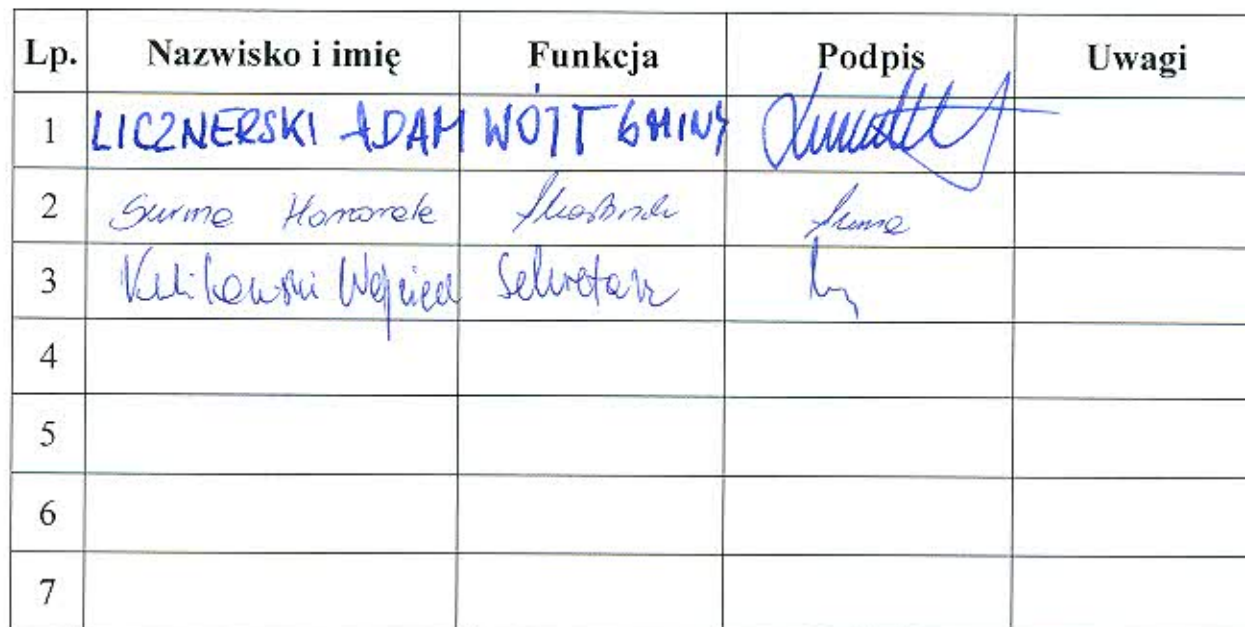 Lp. Nazwisko i imię Funkcja Podpis Uwagi
1 LICZNERSKI ADAM WÓJT GMINY
2 Surma Honorata Skarbnik Surma
3 Kulikowski Wojciech Sekretarz
4
5
6
7